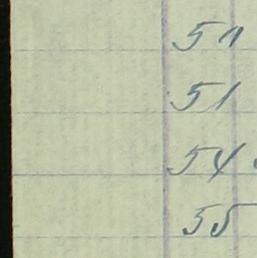 51
51
54
55